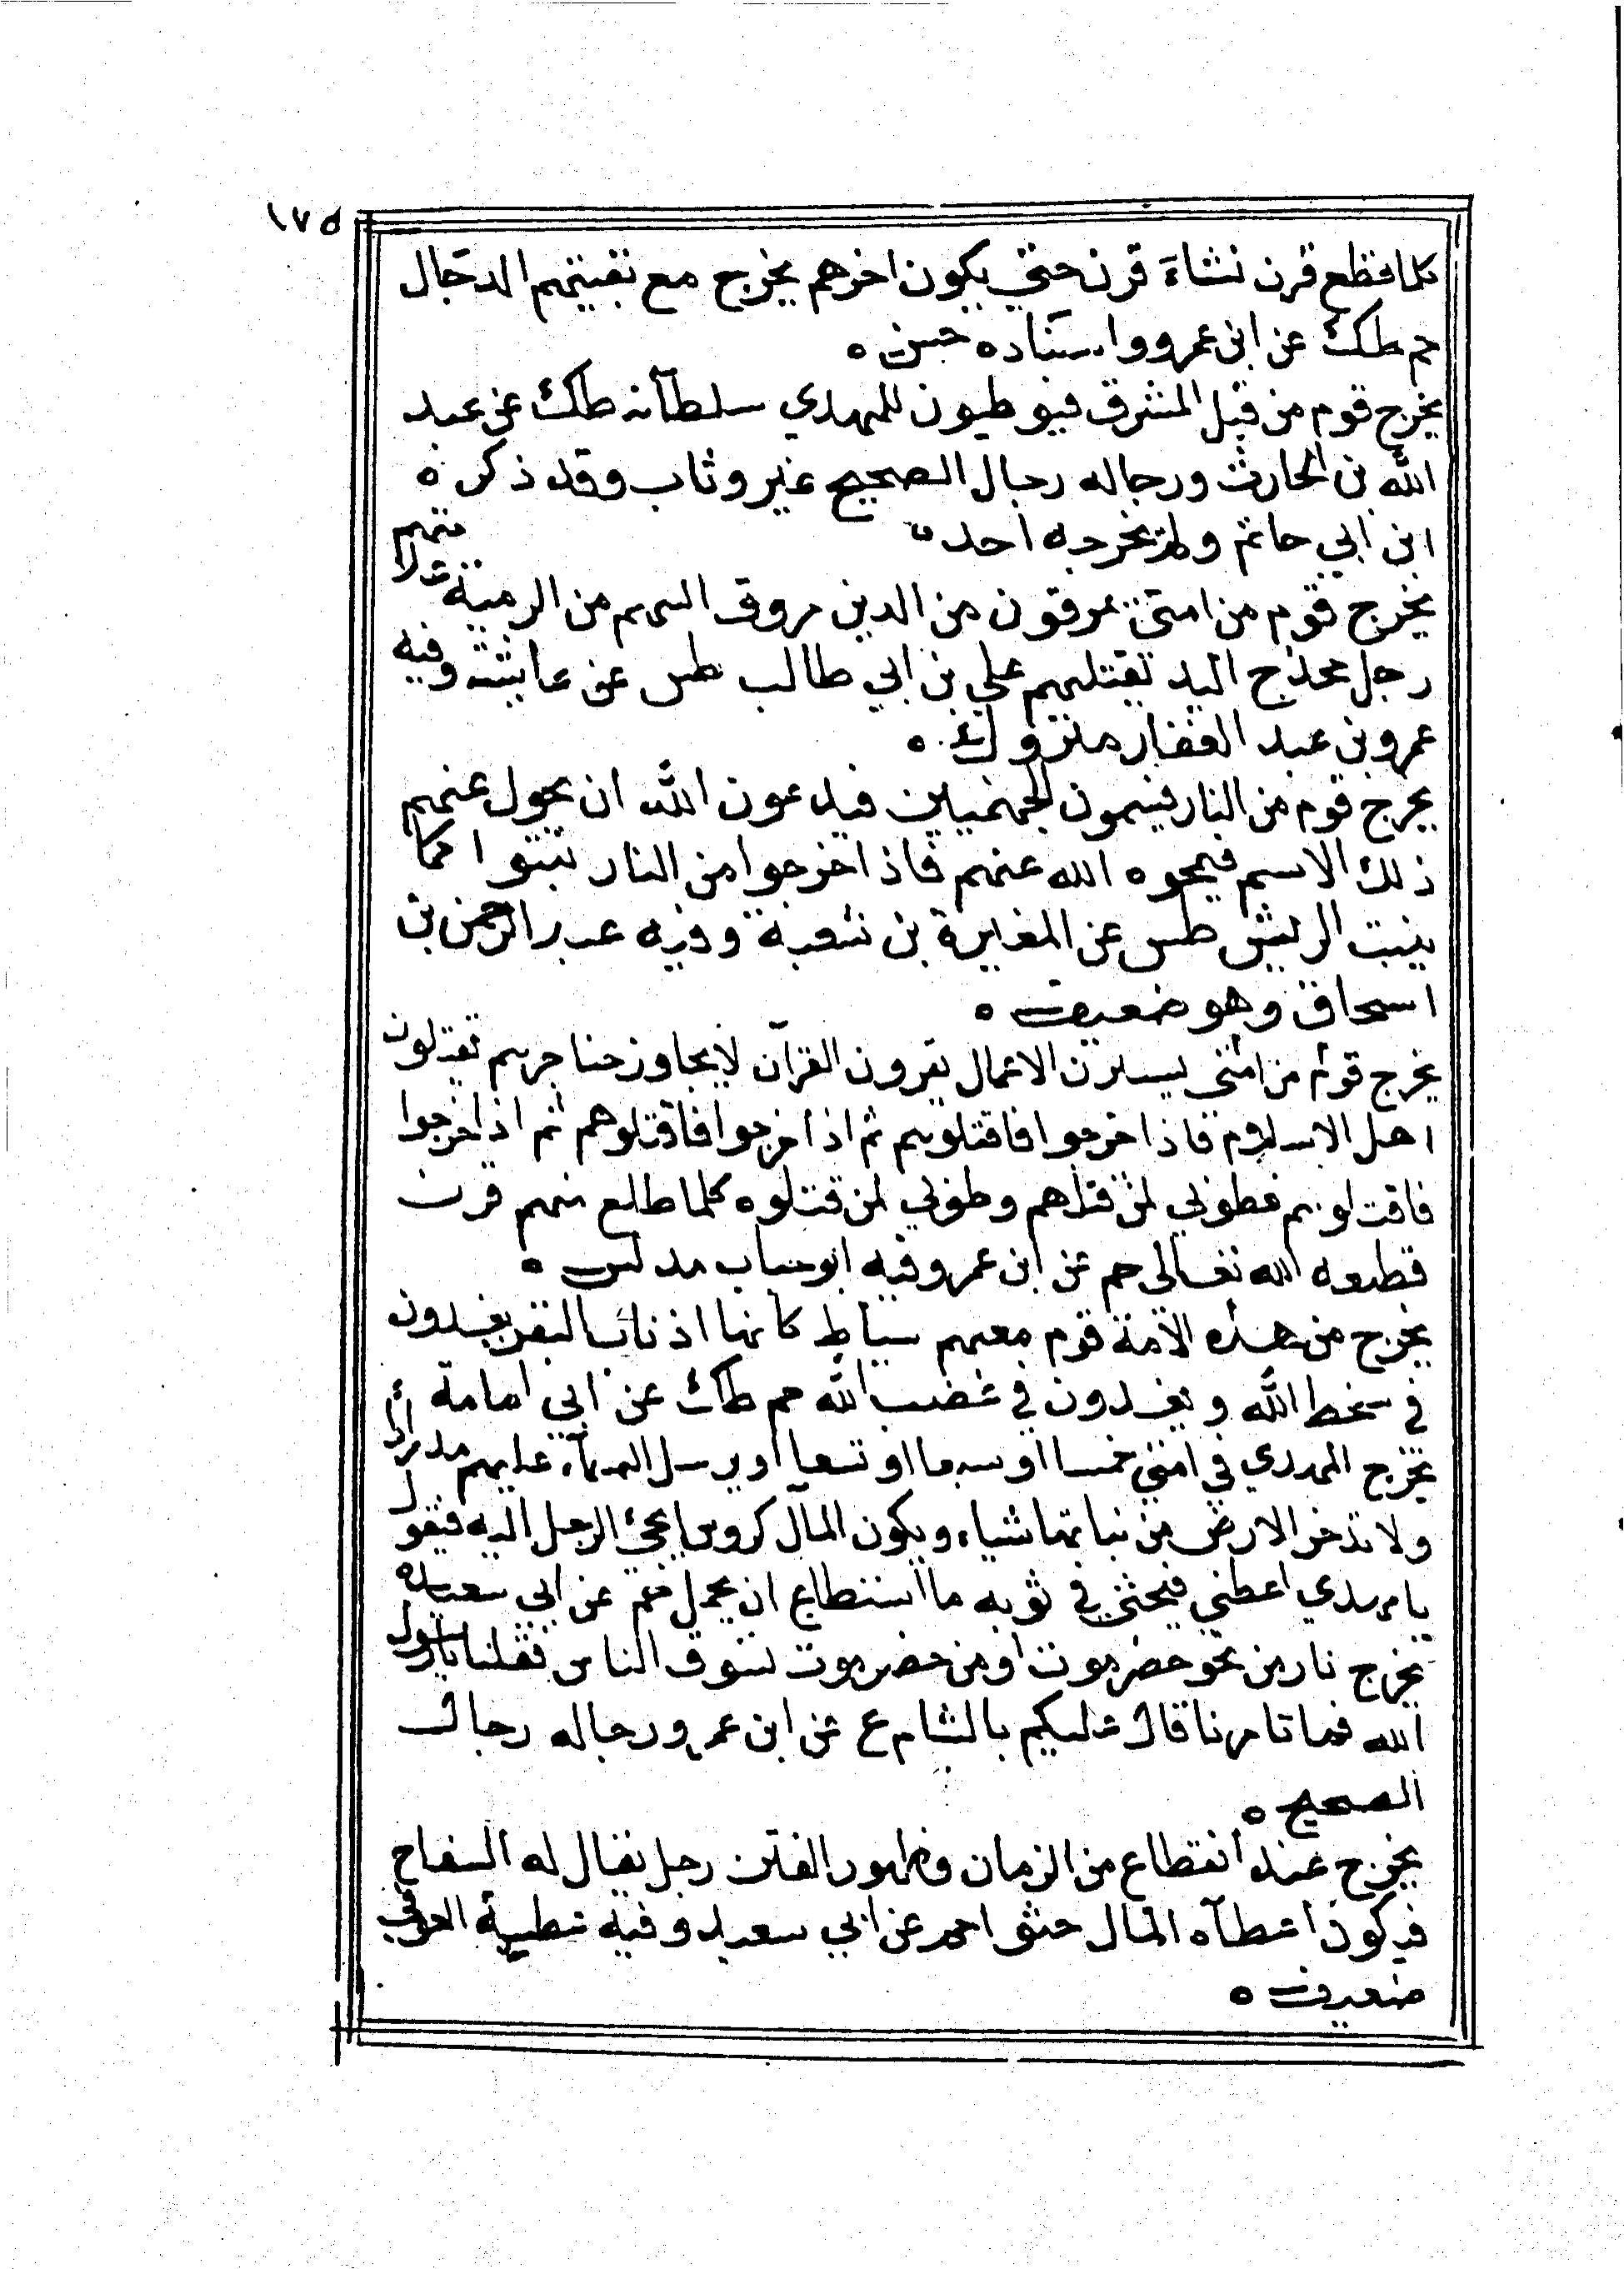 ١٧٥
كلما قطع قرن نشاء قرن حتى يكون اخرهم يخرج مع بقيتهم الدجال
حم طك عن ابن عمرو واسناده حسن ه
يخرج قوم من قبل المشرق فيوطيون للمهدي سلطانه طك عن عبد
الله بن الحارث ورجاله رجال الصحيح غير وثاب وقد ذكره
ابن ابي حاتم ولم يخرجه احد ه
يخرج قوم من امتي يمرقون من الدين مروق السهم من الرمية علامتهم
رجل مخدج اليد تقتلهم علي بن ابي طالب طس عن عايشة وفيه
عمرو بن عبد الغفار متروك ه
يخرج قوم من النار فيسمون الجهنميين فيدعون الله ان يحول عنهم
ذلك الاسم فيمحوه الله عنهم فاذا خرجوا من النار نبتوا كما
ينبت الريش طس عن المغيرة بن شعبة وفيه عبد الرحمن بن
اسحاق وهو ضعيف ه
يخرج قوم من امتي يسيئون الاعمال يقرون القرآن لا يجاوز حناجرهم يقتلون
اهل الاسلام فاذا خرجوا فاقتلوهم ثم اذا خرجوا فاقتلوهم ثم اذا خرجوا
فاقتلوهم فطوبي لمن قتلهم وطوبي لمن قتلوه كلما طلع منهم قرن
قطعه الله تعالى حم عن ابن عمر وفيه ابو جناب مدلس ه
يخرج من هذه الامة قوم معهم سياط كانها اذناب البقر يغدون
في سخط الله ويغدون في غضب الله حم طك عن ابي امامة
يخرج المهدي في امتي خمسا او سبعا او تسعا ويرسل السماء عليهم مدرارا
ولا تدخر الارض من نباتها شياء ويكون المال كروس يجئ الرجل اليه فيقول
يا مهدي اعطني فيحثي في ثوبه ما استطاع ان يحمل حم عن ابي سعيد ه
يخرج نار من نحو حضرموت او من حضرموت تسوق الناس فقلنا يارسول
الله فما تامرنا قال عليكم بالشام ع عن ابن عمر ورجاله رجال
الصحيح ه
يخرج عند انقطاع من الزمان وظهور الفتن رجل يقال له السفاح
فيكون اعطآه المال حثو احمد عن ابي سعيد وفيه عطية العوفي
ضعيف ه